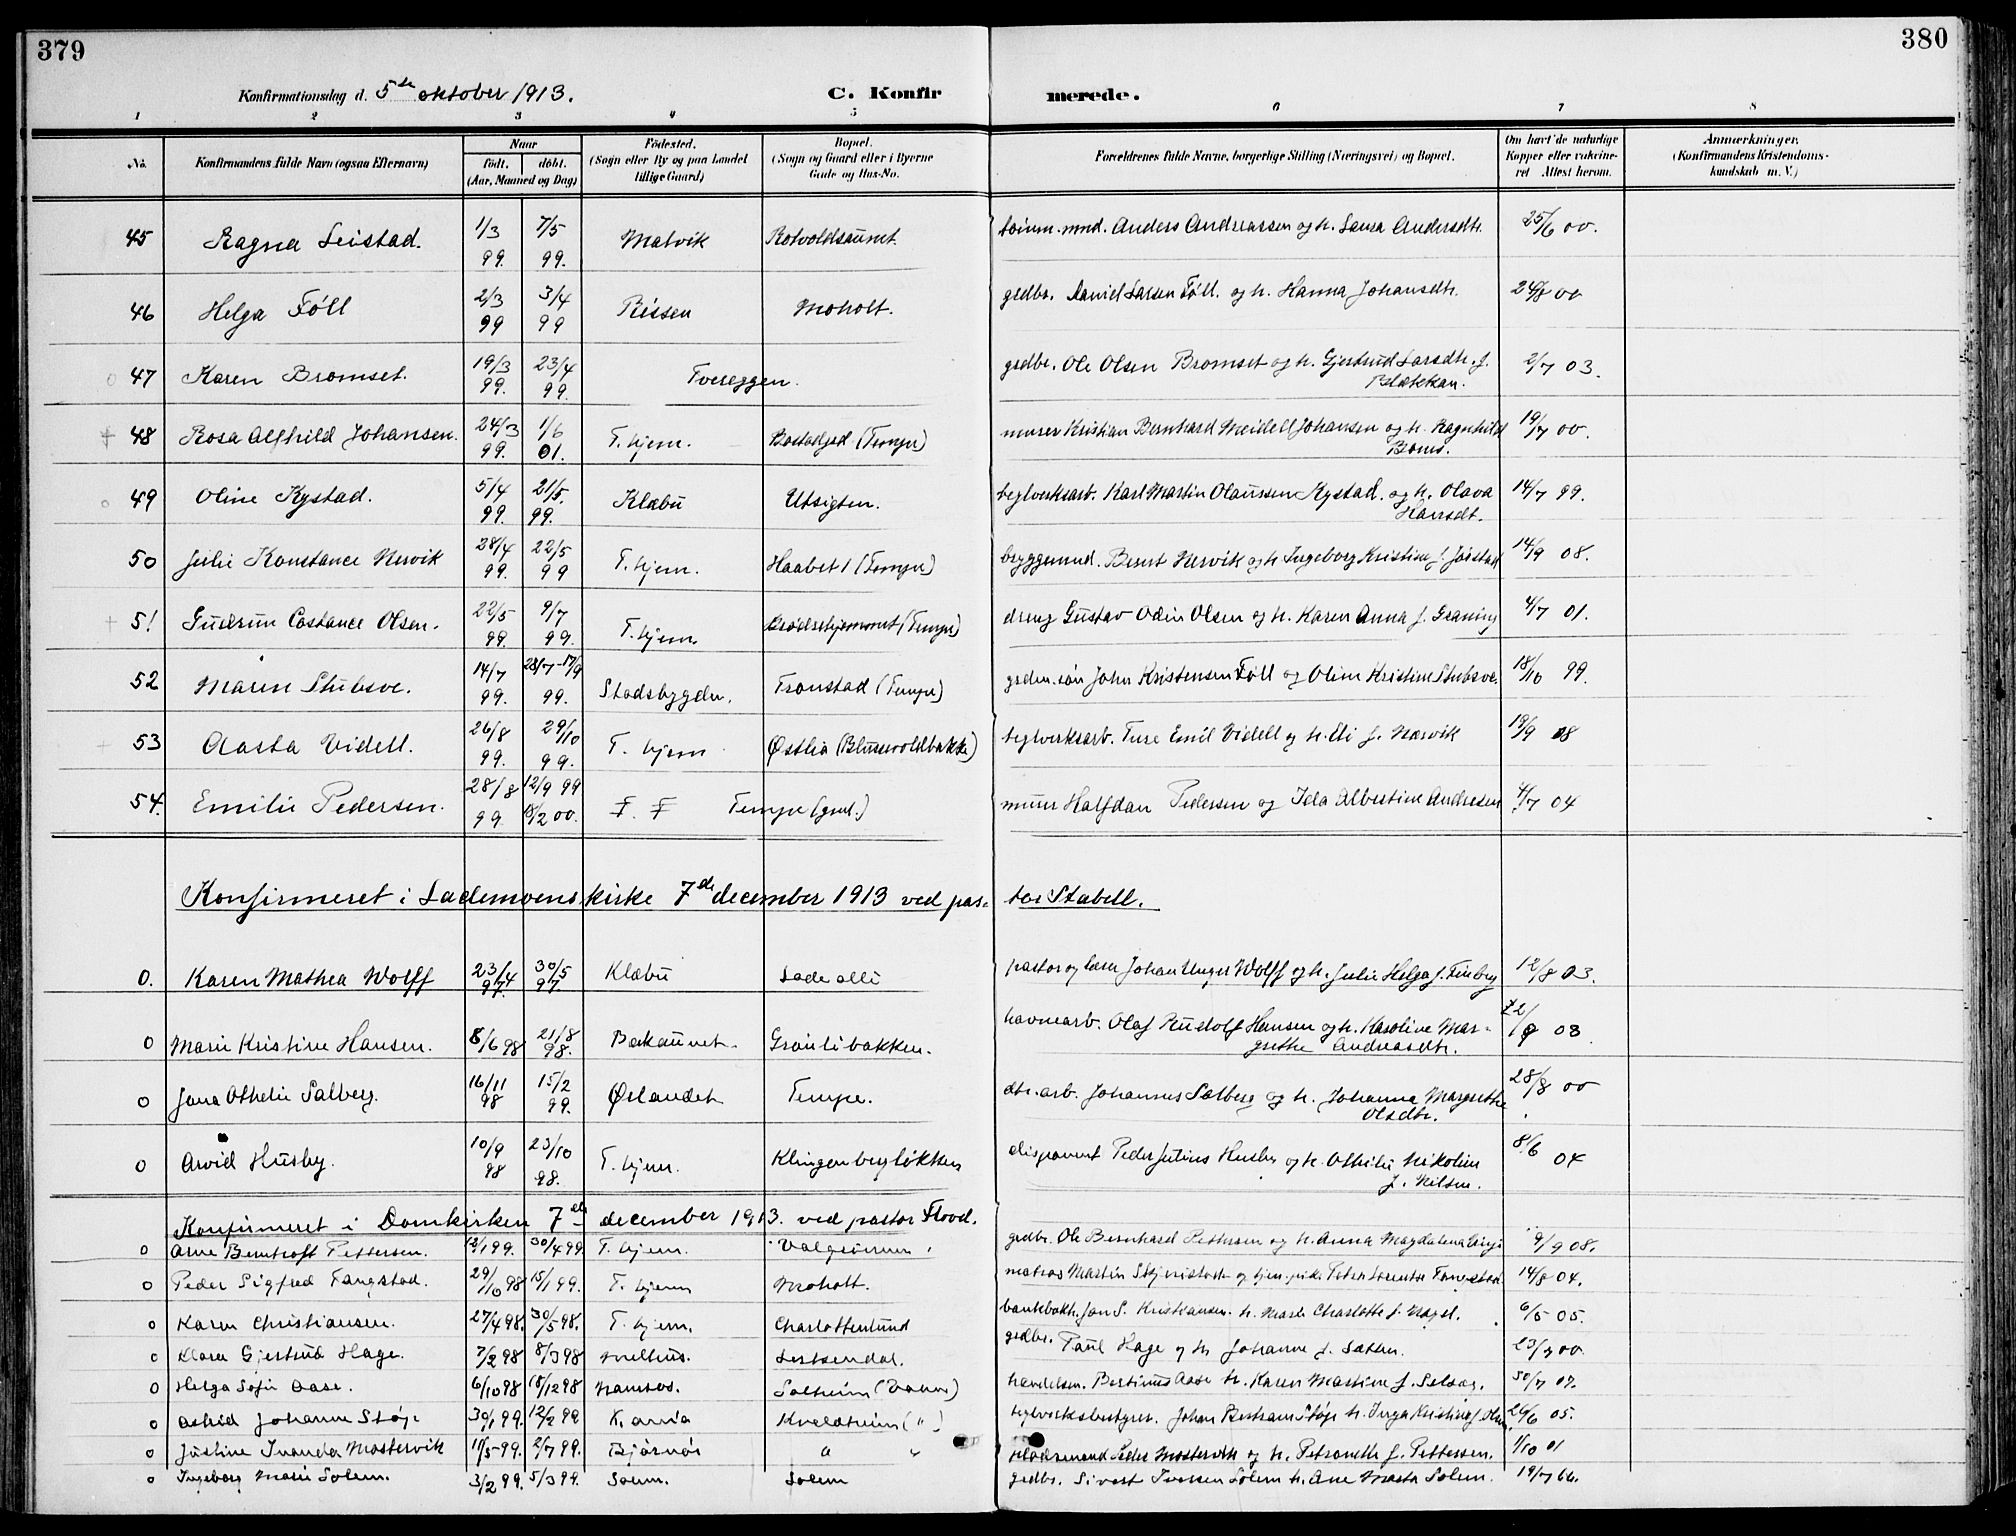 379
380
Konfirmationsdag d. 5te oktober 1913.
C. Konfirmerede.
1 2 3 4 5 6 7 8
No. Konfirmandens fulde Navn (ogsaa Efternavn) Naar født. døbt. (Aar, Maaned og Dag) Fødested. (Sogn eller By og paa Landet tillige Gaard) Bopæl. (Sogn og Gaard eller i Byerne Gade og Hus-No. Forældrenes fulde Navne, borgerlige Stilling (Næringsvei) og Bopæl. Om havt de naturlige Kopper eller vakcineret Attest herom. Anmærkninger. (Konfirmandens Kristendomskundskab m. V.)
45 Ragna Leistad. 1/3 99. 7/5 99. Malvik Rotvoldsaunet. tømm. mnd. Anders Andreassen og h. Laura Andersdtr. 25/6 00.
46 Helga Føll 2/3 99 3/4 99 Rissen Moholt. grdbr. Daniel Larsen Føll. og h. Hanna Johansdtr. 24/8 00
47 Karen Bromset. 19/3 99. 23/4 99. Tvereggen. grdbr. Ole Olsen Bromset og h. Gjertrud Larsdtr. f. Blækkan. 2/7 03.
48 Rosa Alfhild Johansen. 24/3 99. 1/6 01. T.hjem. Bostadgrd (Tempe) murer Kristian Bernhard Meidell Johansen og h. Ragnhild Boms. 19/7 00.
49 Oline Kystad. 5/4 99. 21/5 99. Klæbu Utsigten. teglverksarb. Karl Martin Olaussen Kystad. og h. Olava Hansdt. 14/7 99.
50 Julie Konstance Nervik 28/4 99. 22/5 99 T.hjem. Haabet 1 (Tempe) bryggemnd. Bernt Nervik og h Ingeborg Kristine f. Jøistad 14/9 08.
51 Gudrun Costance Olsen. 22/5 99. 9/7 99. T.hjem. Brødrehjemmet (Tempe) dreng Gustav Odin Olsen og h. Karen Anna f. Graning 4/7 01.
52 Maren Stubsve. 14/7 99. 28/7-17/9 99. Stadsbygden. Tronstad (Tempe) grdm. søn John Kristensen Føll og Oline Kristine Stubsve. 18/10 99.
53 Aasta Videll. 26/8 99. 29/10 99. T. hjem Østlia (Blussvoldbakke) teglverksarb. Ture Emil Videll og h. Eli f. Nærvik 19/9 08
54. Emilie Pedersen. 28/8 99. 12/9 99 18/2 00. F. F Tempe (grd.) murer Halfdan Pedersen og Ida Albertine Andresen 4/7 04
Konfirmeret i Lademoens kirke 7de december 1913 ved pastor Stabell.
0. Karen Mathea Wolff 23/4 97. 30/5 97. Klæbu Lade alle pastor og lærer Johan Unger Wolff og h. Julie Helga f. Finberg 12/8 03.
0 Marie Kristine Hansen. 8/6 98 21/8 98. Bakaunet. Granlibakken. havnearb. Olaf Rudolf Hansen og h. Karoline Margrethe Andreasdtr. 08
0 Jana Othelie Salberg. 16/11 98 15/2 99. Ørlandet Tempe. arb. Johannes Salberg og h. Johanna Margrethe Olsdtr. 28/8 00
0 Arvid Husby. 10/9 98 23/10 98. T. hjem. Klingenbergløkken disponent Peder Julius Husby og h. Othilie Nikoline f. Nilsen. 8/6 04
Konfirmeret i Domkirken 7de december 1913. ved pastor Flood.
0 Arne Berntroft Pettersen. 12/1 99. 30/4 99. T. hjem. grdbr. Ole Bernhard Pettersen og h. Anna Magdalena 9/9 08.
0 Peder Sigfred Fangstad. 29/10 98 15/1 99. T. hjem Moholt. matros Martin og 14/8 04.
0 Karen Christiansen. 27/4 98. 30/5 98. T. hjem. Charlottenlund Jan S. Kristiansen. h. Marie Charlotte f. Nagel. 6/5 05.
0 Klara Gjertrud Hage. 7/2 98 8/3 98 Melhus. Lerkendal. grdbr. Paul Hage og h Johanne f. Sæther. 23/7 00.
0 Helga Sofie Aase. 6/10 98 18/12 98 Namsos. Solheim handelsm. Bertinus Aase h. Karen Martine f. Selsaas. 30/7 07.
0 Astrid Johanne Støp 30/1 99. 12/2 99 K.ania Kveldheim ( " ) teglverksbestyrer. Johan Bertram Støp h. Inga Kristine f. Olsen 26/6 05.
0 Justine Ivanda Mostervik 11/5-99. 2/7 99. Bjørnør " " Peder Mostervik og h. Petronelle f. Pettersen. 1/10 01
0 Ingeborg Marie Solem. 3/2 99. 5/3 99. Solem. Solem grdbr. Sivert Iversen Solem h. Ane Marta Solem.